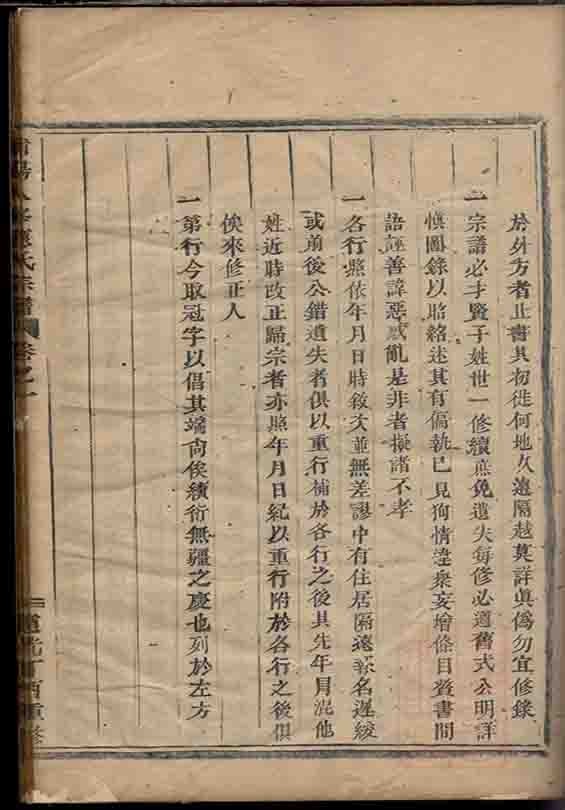 於外方者止書其初徙何地久遠隔越莫詳眞僞勿宜修錄
一宗譜必才賢子姓世一修續庶免遺失每修必遵舊式公明詳
愼圖錄以昭紹述其有偏執已見狗情違衆妄增條目簽書間
語誣善諱惡惑亂是非者擬諸不孝
一各行照依年月日時敘次並無差謬中有住居隔遠報名遲綬
或前後公錯遺失者俱以重行補於各行之後其先年冐混他
姓近時改正歸宗者亦照年月日紀以重行附於各行之後俱
俟來修正人
一第行今取冠字以倡其端尙俟續衍無疆之慶也列於左方
氏宗譜 卷之一
道光丁酉重修